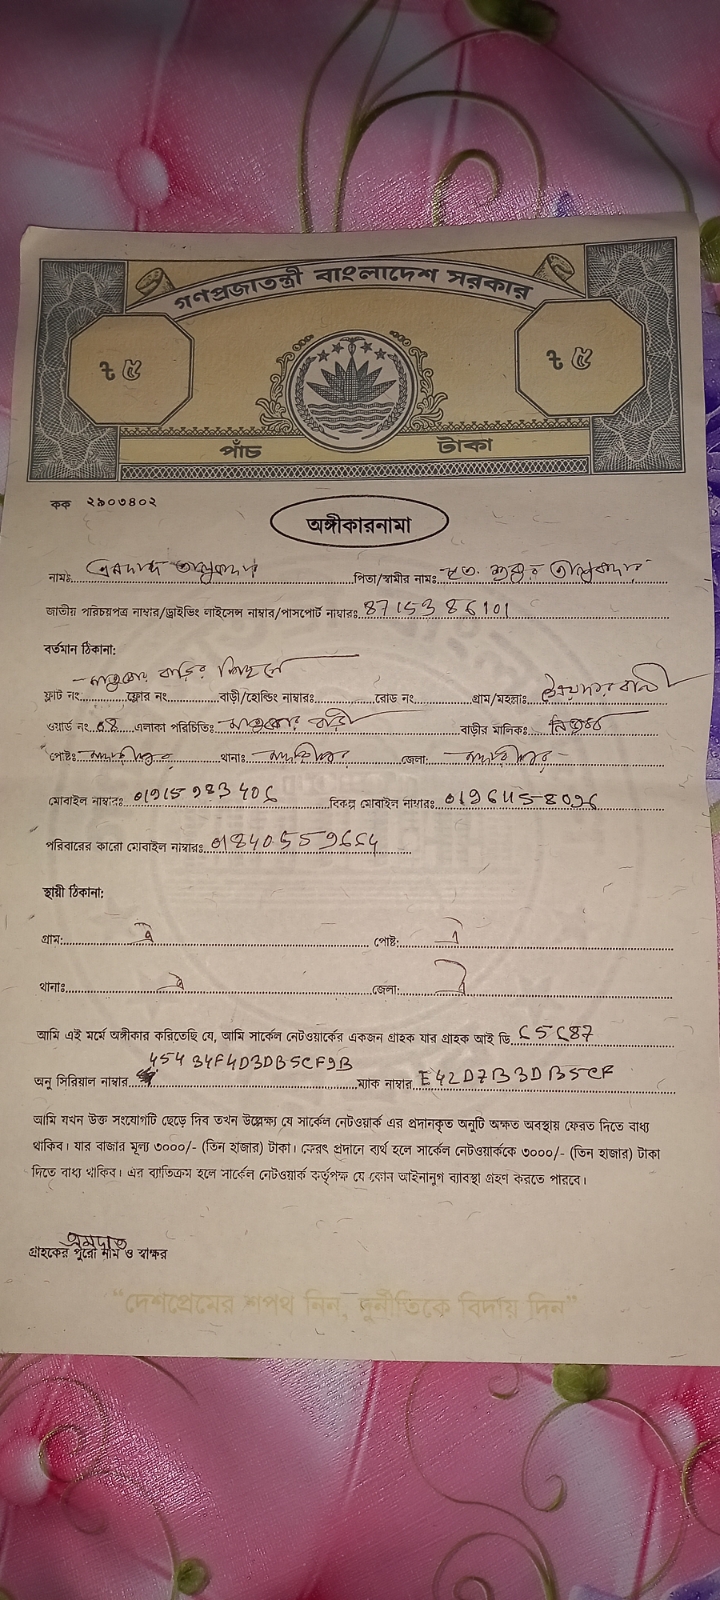 গণপ্রজাতন্ত্রী বাংলাদেশ সরকার
৳ ৫ ৳ ৫
পাঁচ টাকা
কক ২৯০৩৪০২
অঙ্গীকারনামা
নামঃ তালুকদার পিতা/স্বামীর নামঃ মৃত. তালুকদার
জাতীয় পরিচয়পত্র নাম্বার/ড্রাইভিং লাইসেন্স নাম্বার/পাসপোর্ট নাম্বারঃ 8715386101
বর্তমান ঠিকানা:
বাড়ির পিছনে
ফ্লাট নং ফ্লোর নং বাড়ী/হোল্ডিং নাম্বারঃ রোড নং গ্রাম/মহল্লাঃ
ওয়ার্ড নং 08 এলাকা পরিচিতিঃ বাড়ী বাড়ীর মালিকঃ নিজস্ব
পোষ্টঃ মাদারীপুর থানাঃ মাদারীপুর জেলা: মাদারীপুর
মোবাইল নাম্বারঃ বিকল্প মোবাইল নাম্বারঃ
পরিবারের কারো মোবাইল নাম্বারঃ
স্থায়ী ঠিকানা:
গ্রাম: ঐ পোষ্ট: ঐ
থানাঃ ঐ জেলা: ঐ
আমি এই মর্মে অঙ্গীকার করিতেছি যে, আমি সার্কেল নেটওয়ার্কের একজন গ্রাহক যার গ্রাহক আই ডি
অনু সিরিয়াল নাম্বার ম্যাক নাম্বার E42D7B3DB5CF
আমি যখন উক্ত সংযোগটি ছেড়ে দিব তখন উল্লেক্ষ্য যে সার্কেল নেটওয়ার্ক এর প্রদানকৃত অনুটি অক্ষত অবস্থায় ফেরত দিতে বাধ্য
থাকিব। যার বাজার মূল্য ৩০০০/- (তিন হাজার) টাকা। ফেরৎ প্রদানে ব্যর্থ হলে সার্কেল নেটওয়ার্ককে ৩০০০/- (তিন হাজার) টাকা
দিতে বাধ্য থাকিব। এর ব্যতিক্রম হলে সার্কেল নেটওয়ার্ক কর্তৃপক্ষ যে কোন আইনানুগ ব্যাবস্থা গ্রহণ করতে পারবে।
গ্রাহকের পুরো নাম ও স্বাক্ষর
"দেশপ্রেমের শপথ নিন, দুর্নীতিকে বিদায় দিন"